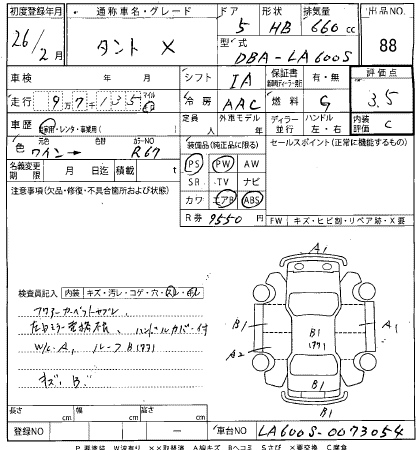 初度登録年月 通称車名・グレード ドア 形状 排気量 出品NO.
26/2月 タント X 5 HB 660 cc 88
型式 DBA-LA600S
車検 年 月 シフト IA 保証書 有・無 評価点
走行 9万7千135 マイル km 冷房 AAC 燃料 G 3.5
車歴 自家用・レンタ・事業用( ) 定員 人 外車モデル 年 ディーラー 並行 ハンドル 左・右 内装評価 C
色 元色 ワイン→ 色替 カラーNO R67 装備品(純正品に限る) セールスポイント(正常に機能するもの)
名義変更期限 月 日迄 積載 t PS PW AW
注意事項(欠品・修復・不具合箇所および状態) SR TV ナビ
カワ エアB ABS
R券 9550 円 FW キズ・ヒビ割・リペア跡・X要
A1
検査員記入 内装 キズ・汚レ・コゲ・穴・スレ・
フロアーカーペット
ハンドルカバー付
W/C A1 ルーフ B1
キズ B
B1 A2 B1 A1 B1 B1
長さ cm 幅 cm 高さ cm
登録NO - 車台NO LA600S-0073054
P 要塗装 W波有り ××取替済 A線キズ Bヘコミ Sさび ×要交換 C腐食